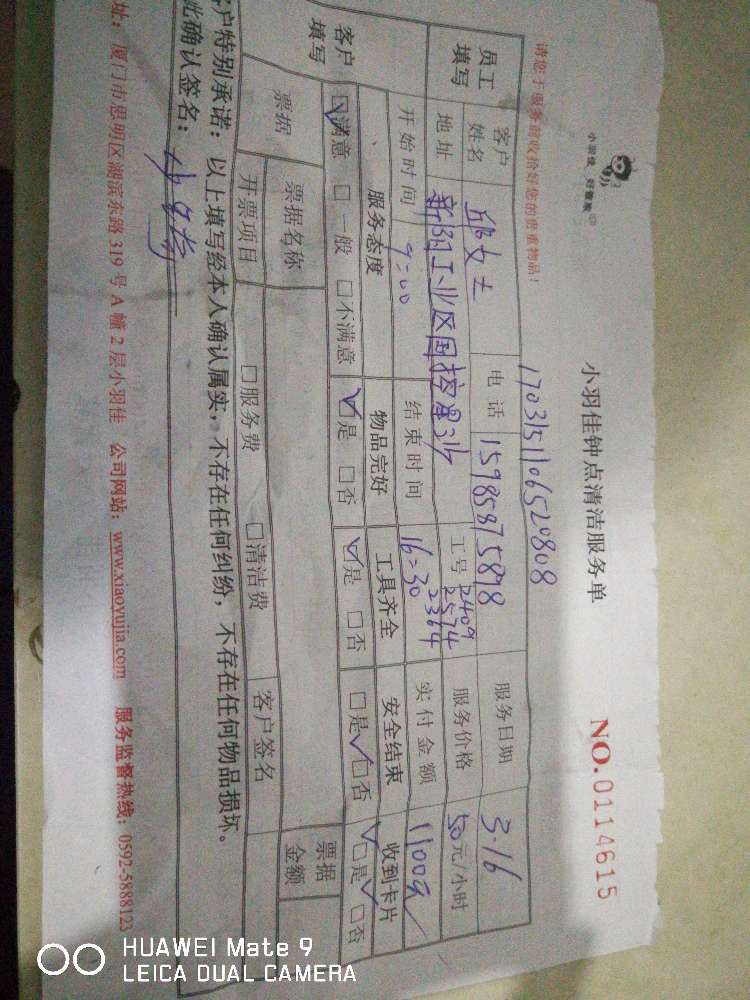 小羽佳 好管家
小羽佳钟点清洁服务单
NO.0114615
请您于服务前收拾好您的贵重物品！
1703151106520808
员工填写
客户姓名 邱女士 电话 15985875878 服务日期 3.16
地址 新阳工业区国控星 工号 2409 2574 2364 服务价格 50元/小时
开始时间 9:00 结束时间 16:30 实付金额 1100元
客户填写
服务态度 物品完好 工具齐全 安全结束 收到卡片
☑满意 □一般 □不满意 ☑是 □否 ☑是 □否 □是 ✓ □否 ✓ □是 ✓ □否
票据 票据名称 票据金额
开票项目 □服务费 □清洁费 客户签名
客户特别承诺：以上填写经本人确认属实，不存在任何纠纷，不存在任何物品损坏。
此确认签名：
址：厦门市思明区湖滨东路 319 号 A 幢 2 层小羽佳 公司网站：www.xiaoyujia.com 服务监督热线：0592-5888123
HUAWEI Mate 9
LEICA DUAL CAMERA